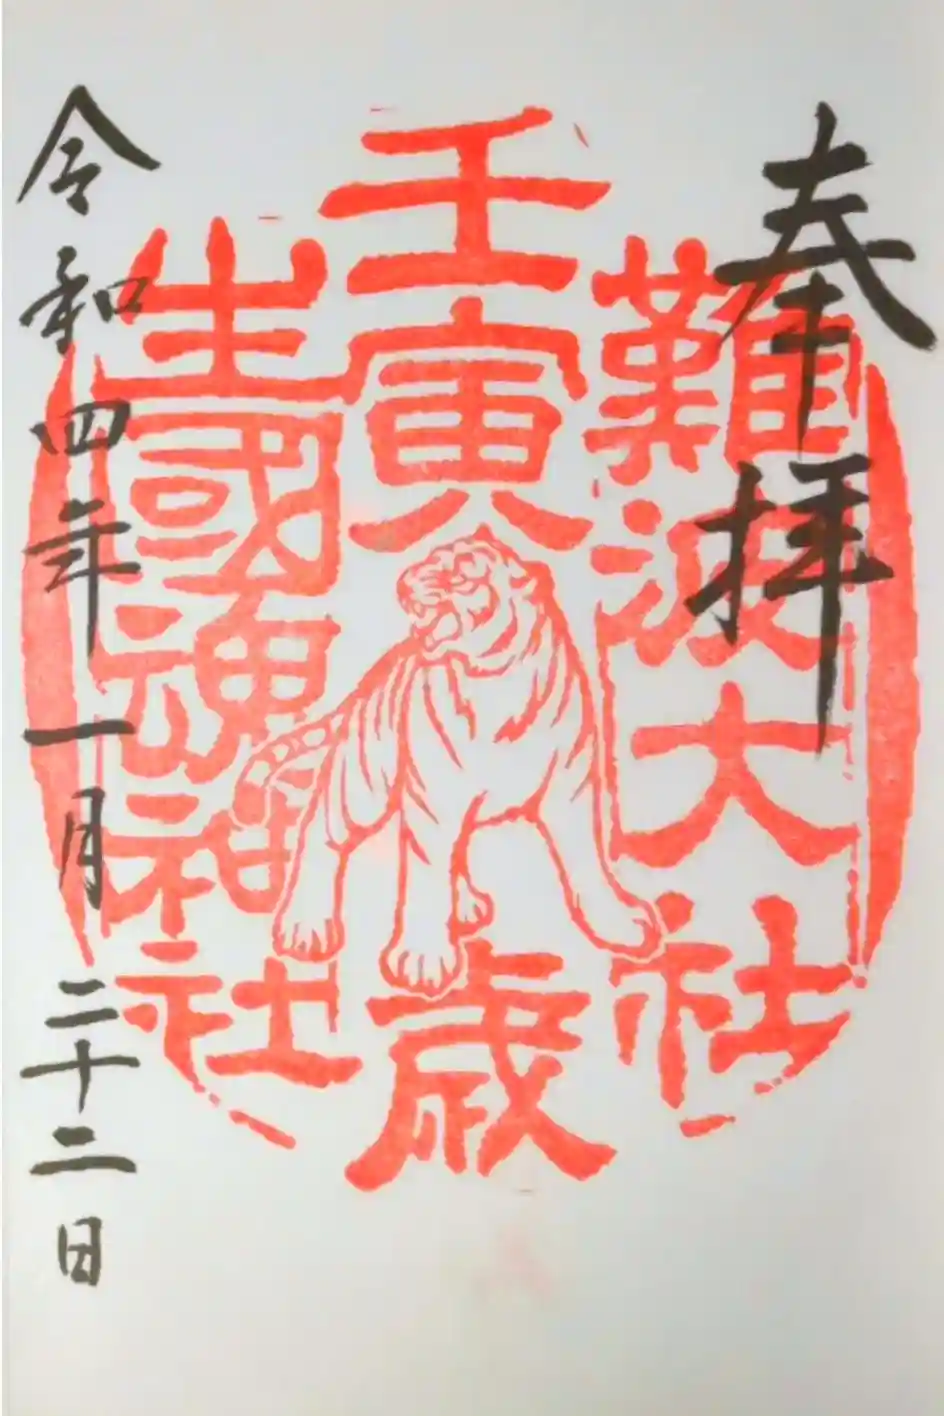 奉拝
難波大社
壬寅歳
生國魂神社
令和四年一月二十二日